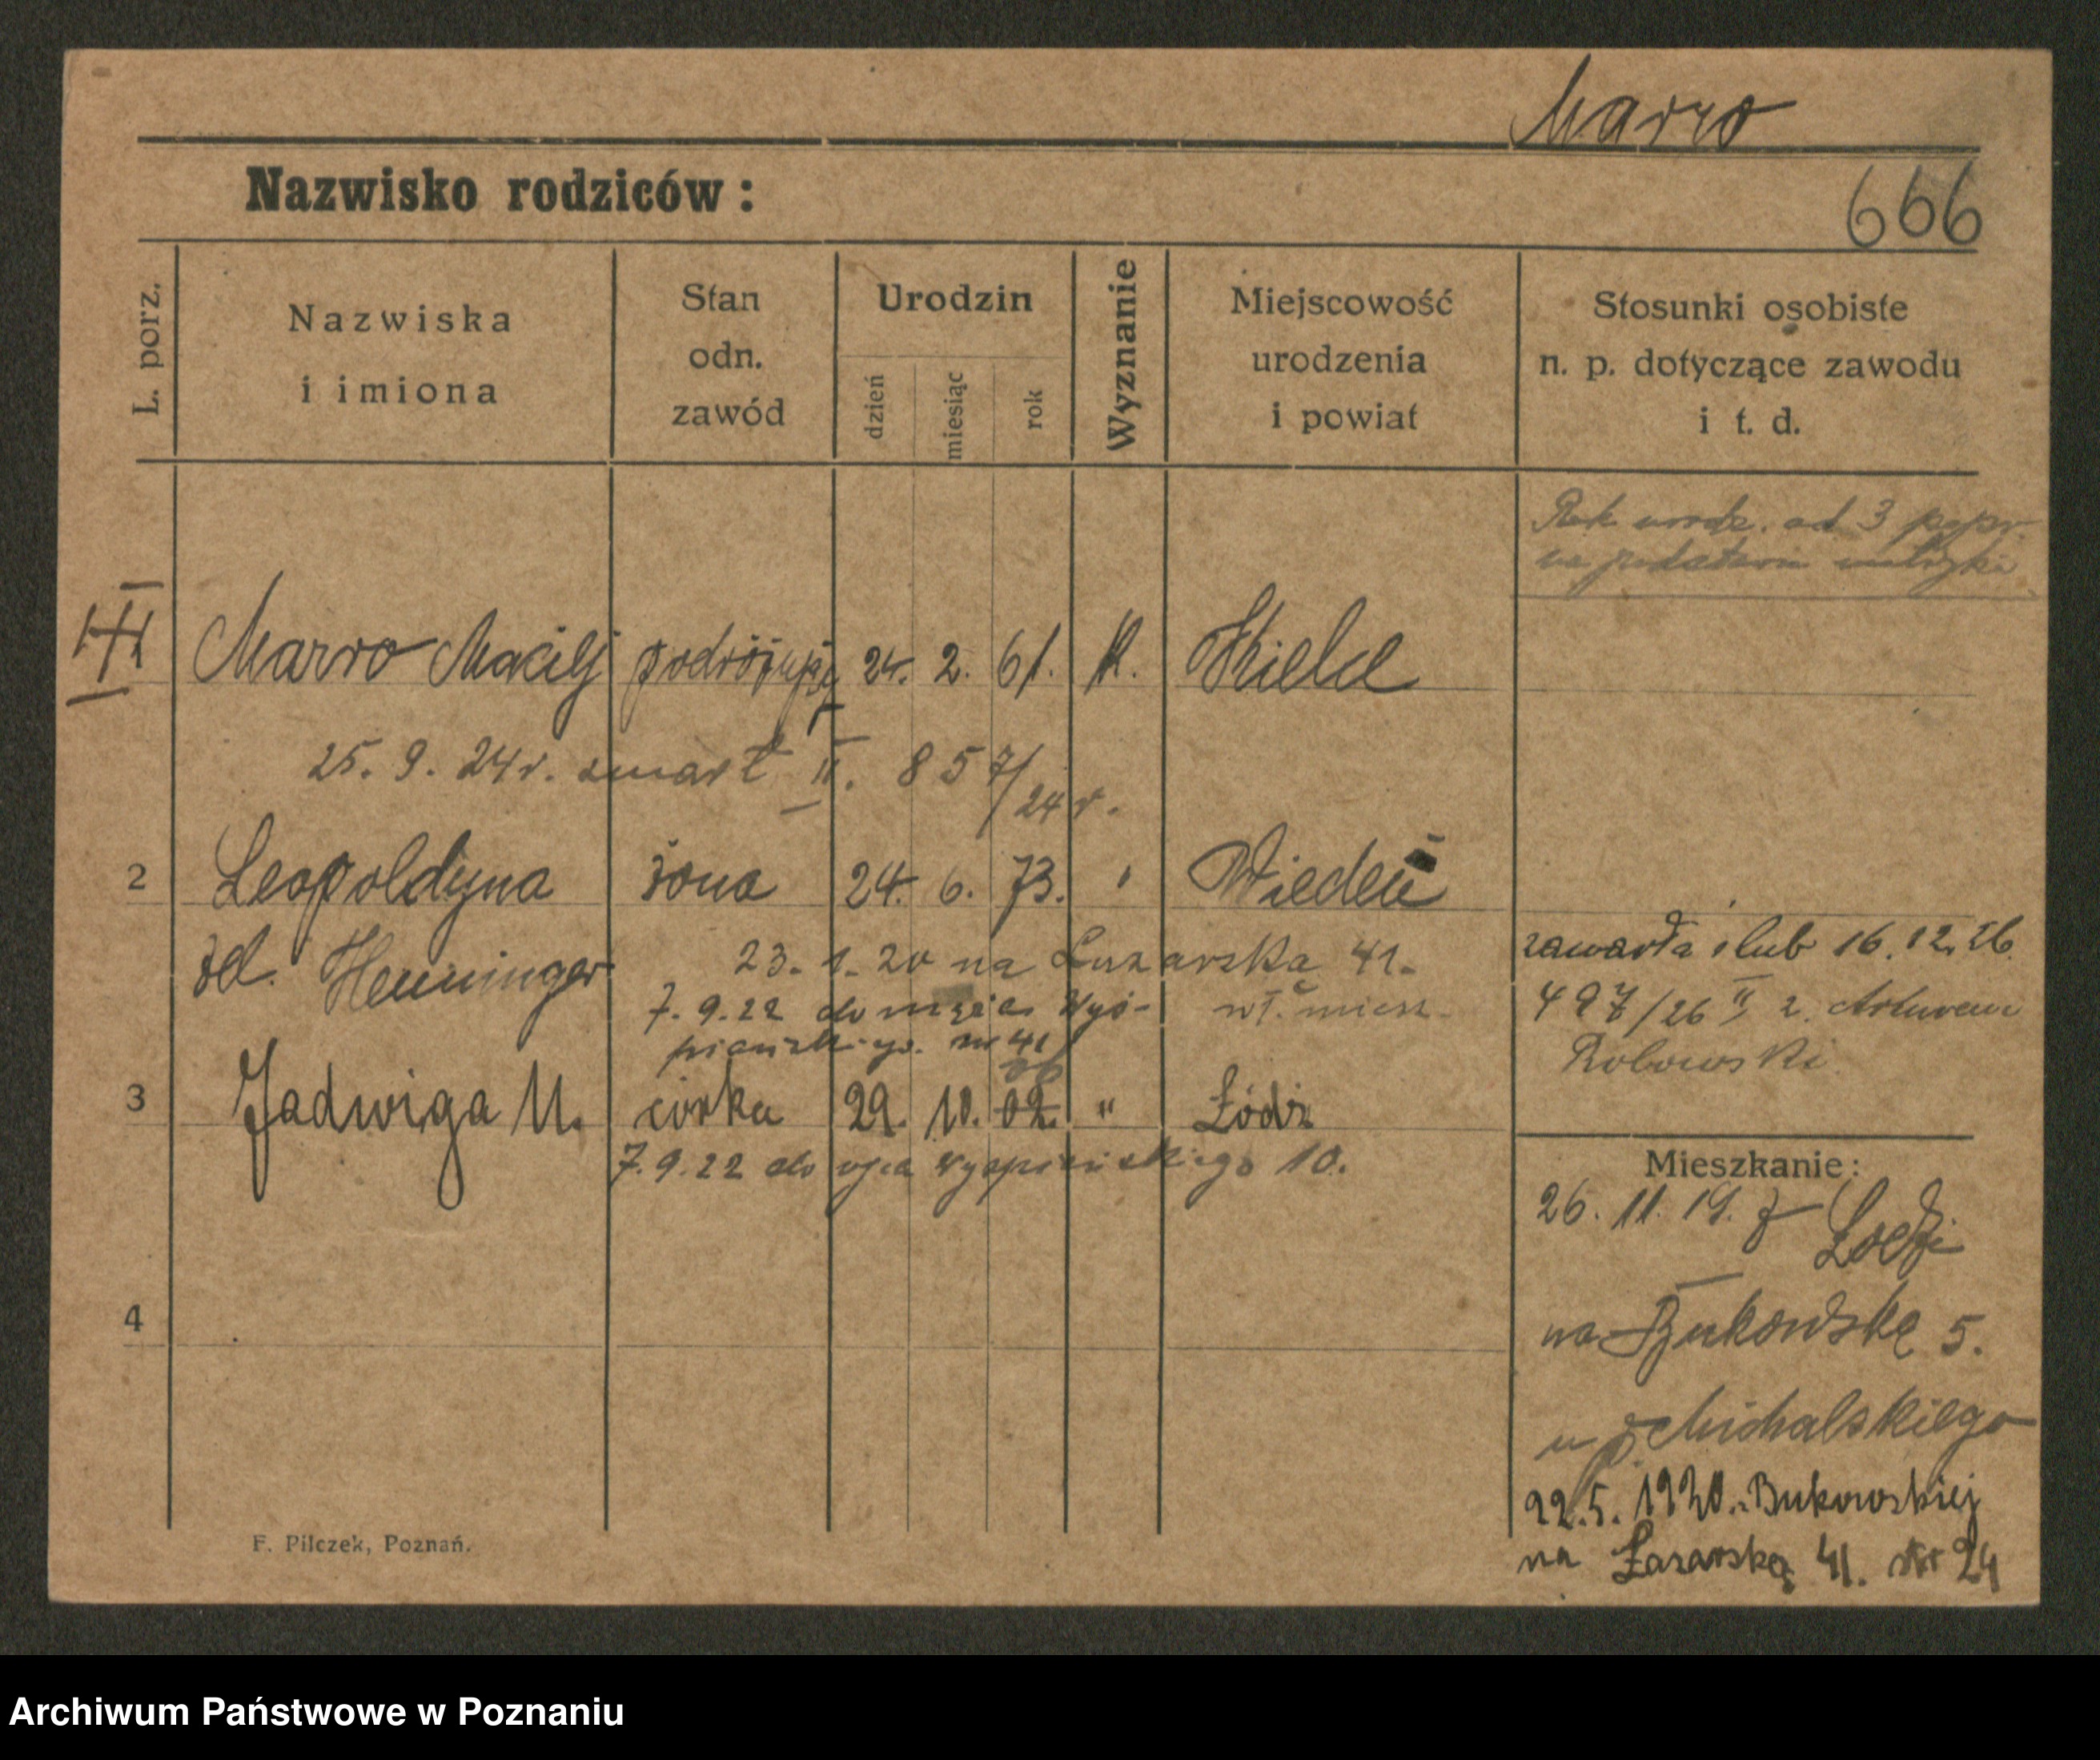 Marro
Nazwisko rodziców:
666
L. porz.
Nazwiska
i imiona
Stan
odn.
zawód
Urodzin
dzień
miesiąc
rok
Wyznanie
Miejscowość
urodzenia
i powiat
Stosunki osobiste
n. p. dotyczące zawodu
i t. d.
Rok urodz. od 3 popr.
na podstawie metryki
Marro Maciej podróżujący 24. 2. 61. K. Kielce
25. 9. 24 r. zmarł II. 857/24 r.
2 Leopoldyna żona 24. 6. 73. " Wiedeń
zawarła ślub 16.12.26.
żd. Henninger 23. 1. 20 na Łazarska 41.
497/26 II z Arturem
7. 9. 22 do męża Wys-
wł. miesz.
piańskiego nr 41
Robowski
06
3 Jadwiga M. córka 29. 10. 02. " Łódź
7. 9. 22 do ojca Wyspiańskiego 10.
Mieszkanie:
26. 11. 19. z Łodzi
4
na Bukowską 5.
u p. Michalskiego
22.5. 1920. Bukowskiej
na Łazarską 41. nr 24
F. Pilczek, Poznań.
Archiwum Państwowe w Poznaniu